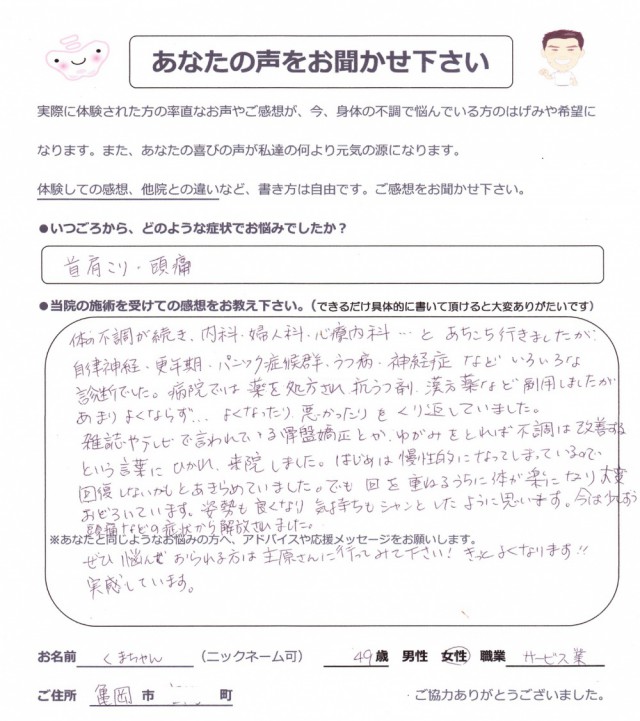 あなたの声をお聞かせ下さい
実際に体験された方の率直なお声やご感想が、今、身体の不調で悩んでいる方のはげみや希望に
なります。また、あなたの喜びの声が私達の何より元気の源になります。
体験しての感想、他院との違いなど、書き方は自由です。ご感想をお聞かせ下さい。
●いつごろから、どのような症状でお悩みでしたか？
首肩こり・頭痛
●当院の施術を受けての感想をお教え下さい。（できるだけ具体的に書いて頂けると大変ありがたいです）
体の不調が続き、内科・婦人科・心療内科…と あちこち行きましたが、
自律神経・更年期・パニック症候群・うつ病・神経症 など いろいろな
診断でした。病院では 薬を処方され 抗うつ剤、漢方薬など 服用しましたが
あまり よくならず… よくなったり 悪かったりを くり返していました。
雑誌やテレビで言われている骨盤矯正とか、ゆがみをとれば 不調は 改善する
という言葉に ひかれ、来院しました。はじめは 慢性的に なってしまっているので
回復しないかしらとあきらめていました。でも 回を重ねるうちに 体が 楽に なり 大変
おどろいています。姿勢も良くなり 気持ちも シャンと したように思います。今は
頭痛などの症状から 解放されました。
※あなたと同じようなお悩みの方へ、アドバイスや応援メッセージをお願いします。
ぜひ 悩んで おられる方は 主原さんに行ってみて下さい！ きっと よくなります!!
実感しています。
お名前 くまちゃん （ニックネーム可） 49歳 男性 女性 職業 サービス業
ご住所 亀岡 市 町 ご協力ありがとうございました。